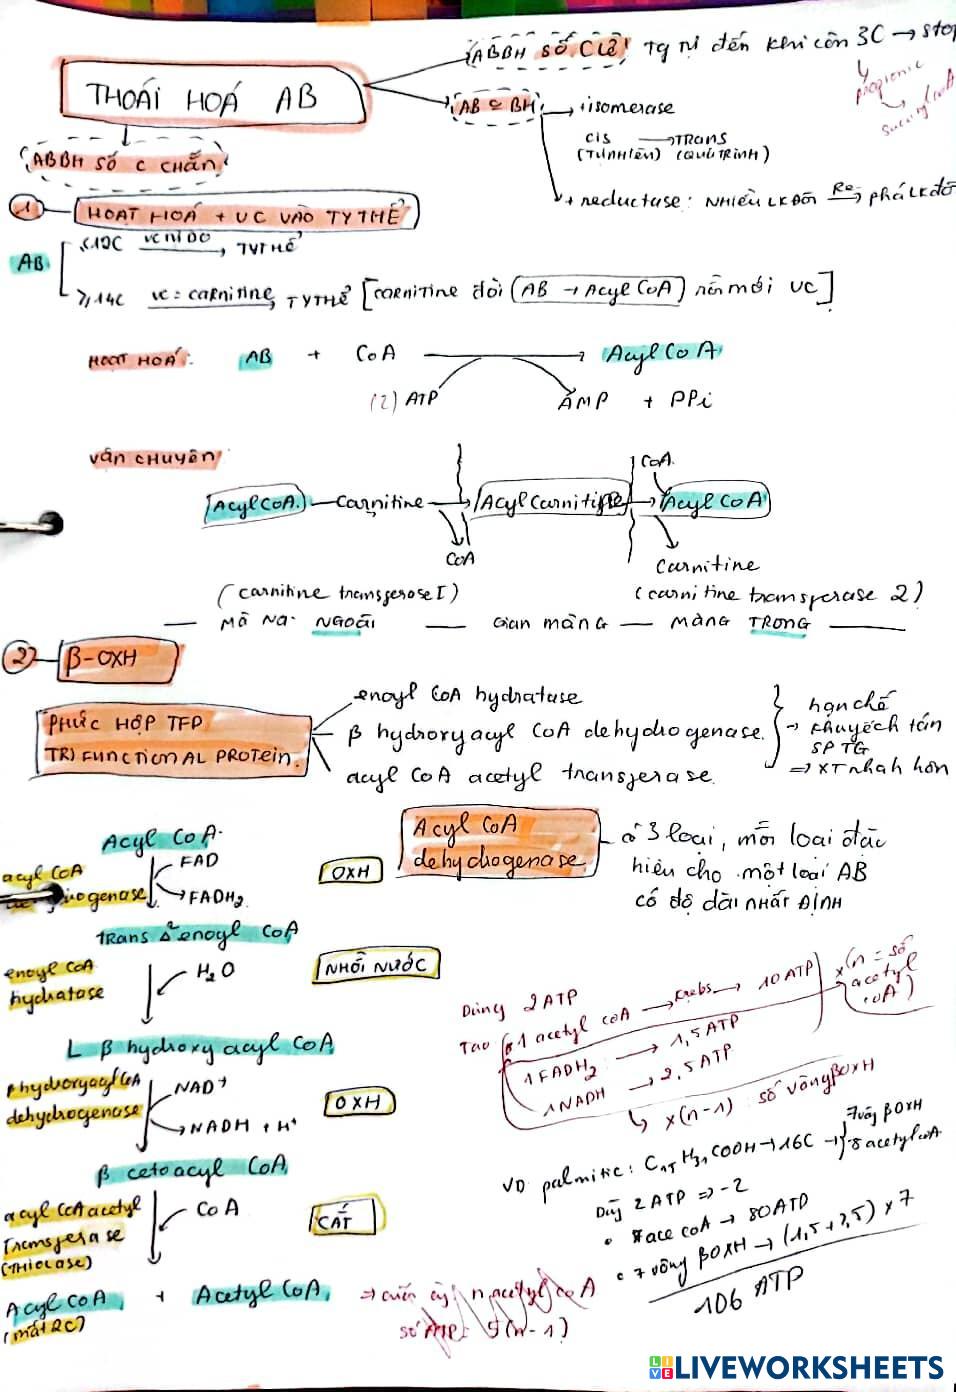 THOÁI HOÁ AB
ABBH SỐ C LẺ: Tg tự đến khi còn 3C → stop
propionic
succinyl CoA
AB C BH → + isomerase
cis → TRANS
(TỰ NHIÊN) (QUÁ TRÌNH)
+ reductase: NHIỀU LK ĐÔI Re→ phá LK đôi
ABBH SỐ C CHẴN
1 HOẠT HOÁ + VC VÀO TY THỂ
AB
≤12C VC TỰ DO → TY THỂ
≥14C VC = CARNITINE → TY THỂ [CARNITINE đòi (AB → Acyl CoA) rồi mới VC]
HOẠT HOÁ: AB + CoA → Acyl CoA
(2) ATP AMP + PPi
VẬN CHUYỂN
Acyl CoA. — Carnitine → Acyl Carnitine → Acyl CoA
CoA.
CoA
Carnitine
(carnitine transferase I) (carnitine transferase 2)
— Mã Na. NGOÀI — GIAN MÀNG — MÀNG TRONG —
2 β-OXH
PHỨC HỢP TFP
TRIFUNCTIONAL PROTEIN.
enoyl CoA hydratase
β hydroxy acyl CoA dehydrogenase.
acyl CoA acetyl transferase.
hạn chế
→ khuyếch tán
SP TG
⇒ XT nhanh hơn
Acyl CoA
dehydrogenase
có 3 loại, mỗi loại đặc
hiệu cho một loại AB
có độ dài NHẤT ĐỊNH
Acyl CoA
acyl CoA
FAD
FADH₂
OXH
trans Δ² enoyl CoA
enoyl CoA
hydratase
H₂O
NHỒI NƯỚC
L β hydroxy acyl CoA
β hydroxyacyl CoA
dehydrogenase
NAD⁺
NADH + H⁺
OXH
β cetoacyl CoA
acyl CoA acetyl
Transferase
(THIOLASE)
CoA
CẮT
Acyl CoA + Acetyl CoA ⇒ cuối cùg n acetyl CoA
(mất 2C)
số ATP: 5(n-1)
Dùng 2 ATP
Tạo 1 acetyl coA → Krebs → 10 ATP
x (n = số
acetyl
CoA)
1 FADH₂ → 1,5 ATP
1 NADH → 2,5 ATP
↳ x (n-1) : số vòng β OXH
VD palmitic: C₁₅H₃₁COOH → 16C →
7 vòng β OXH
8 acetyl CoA
Dùg 2 ATP ⇒ -2
• 8 ace coA → 80 ATP
• 7 vòng β OXH → (1,5 + 2,5) x 7
106 ATP
LIVEWORKSHEETS